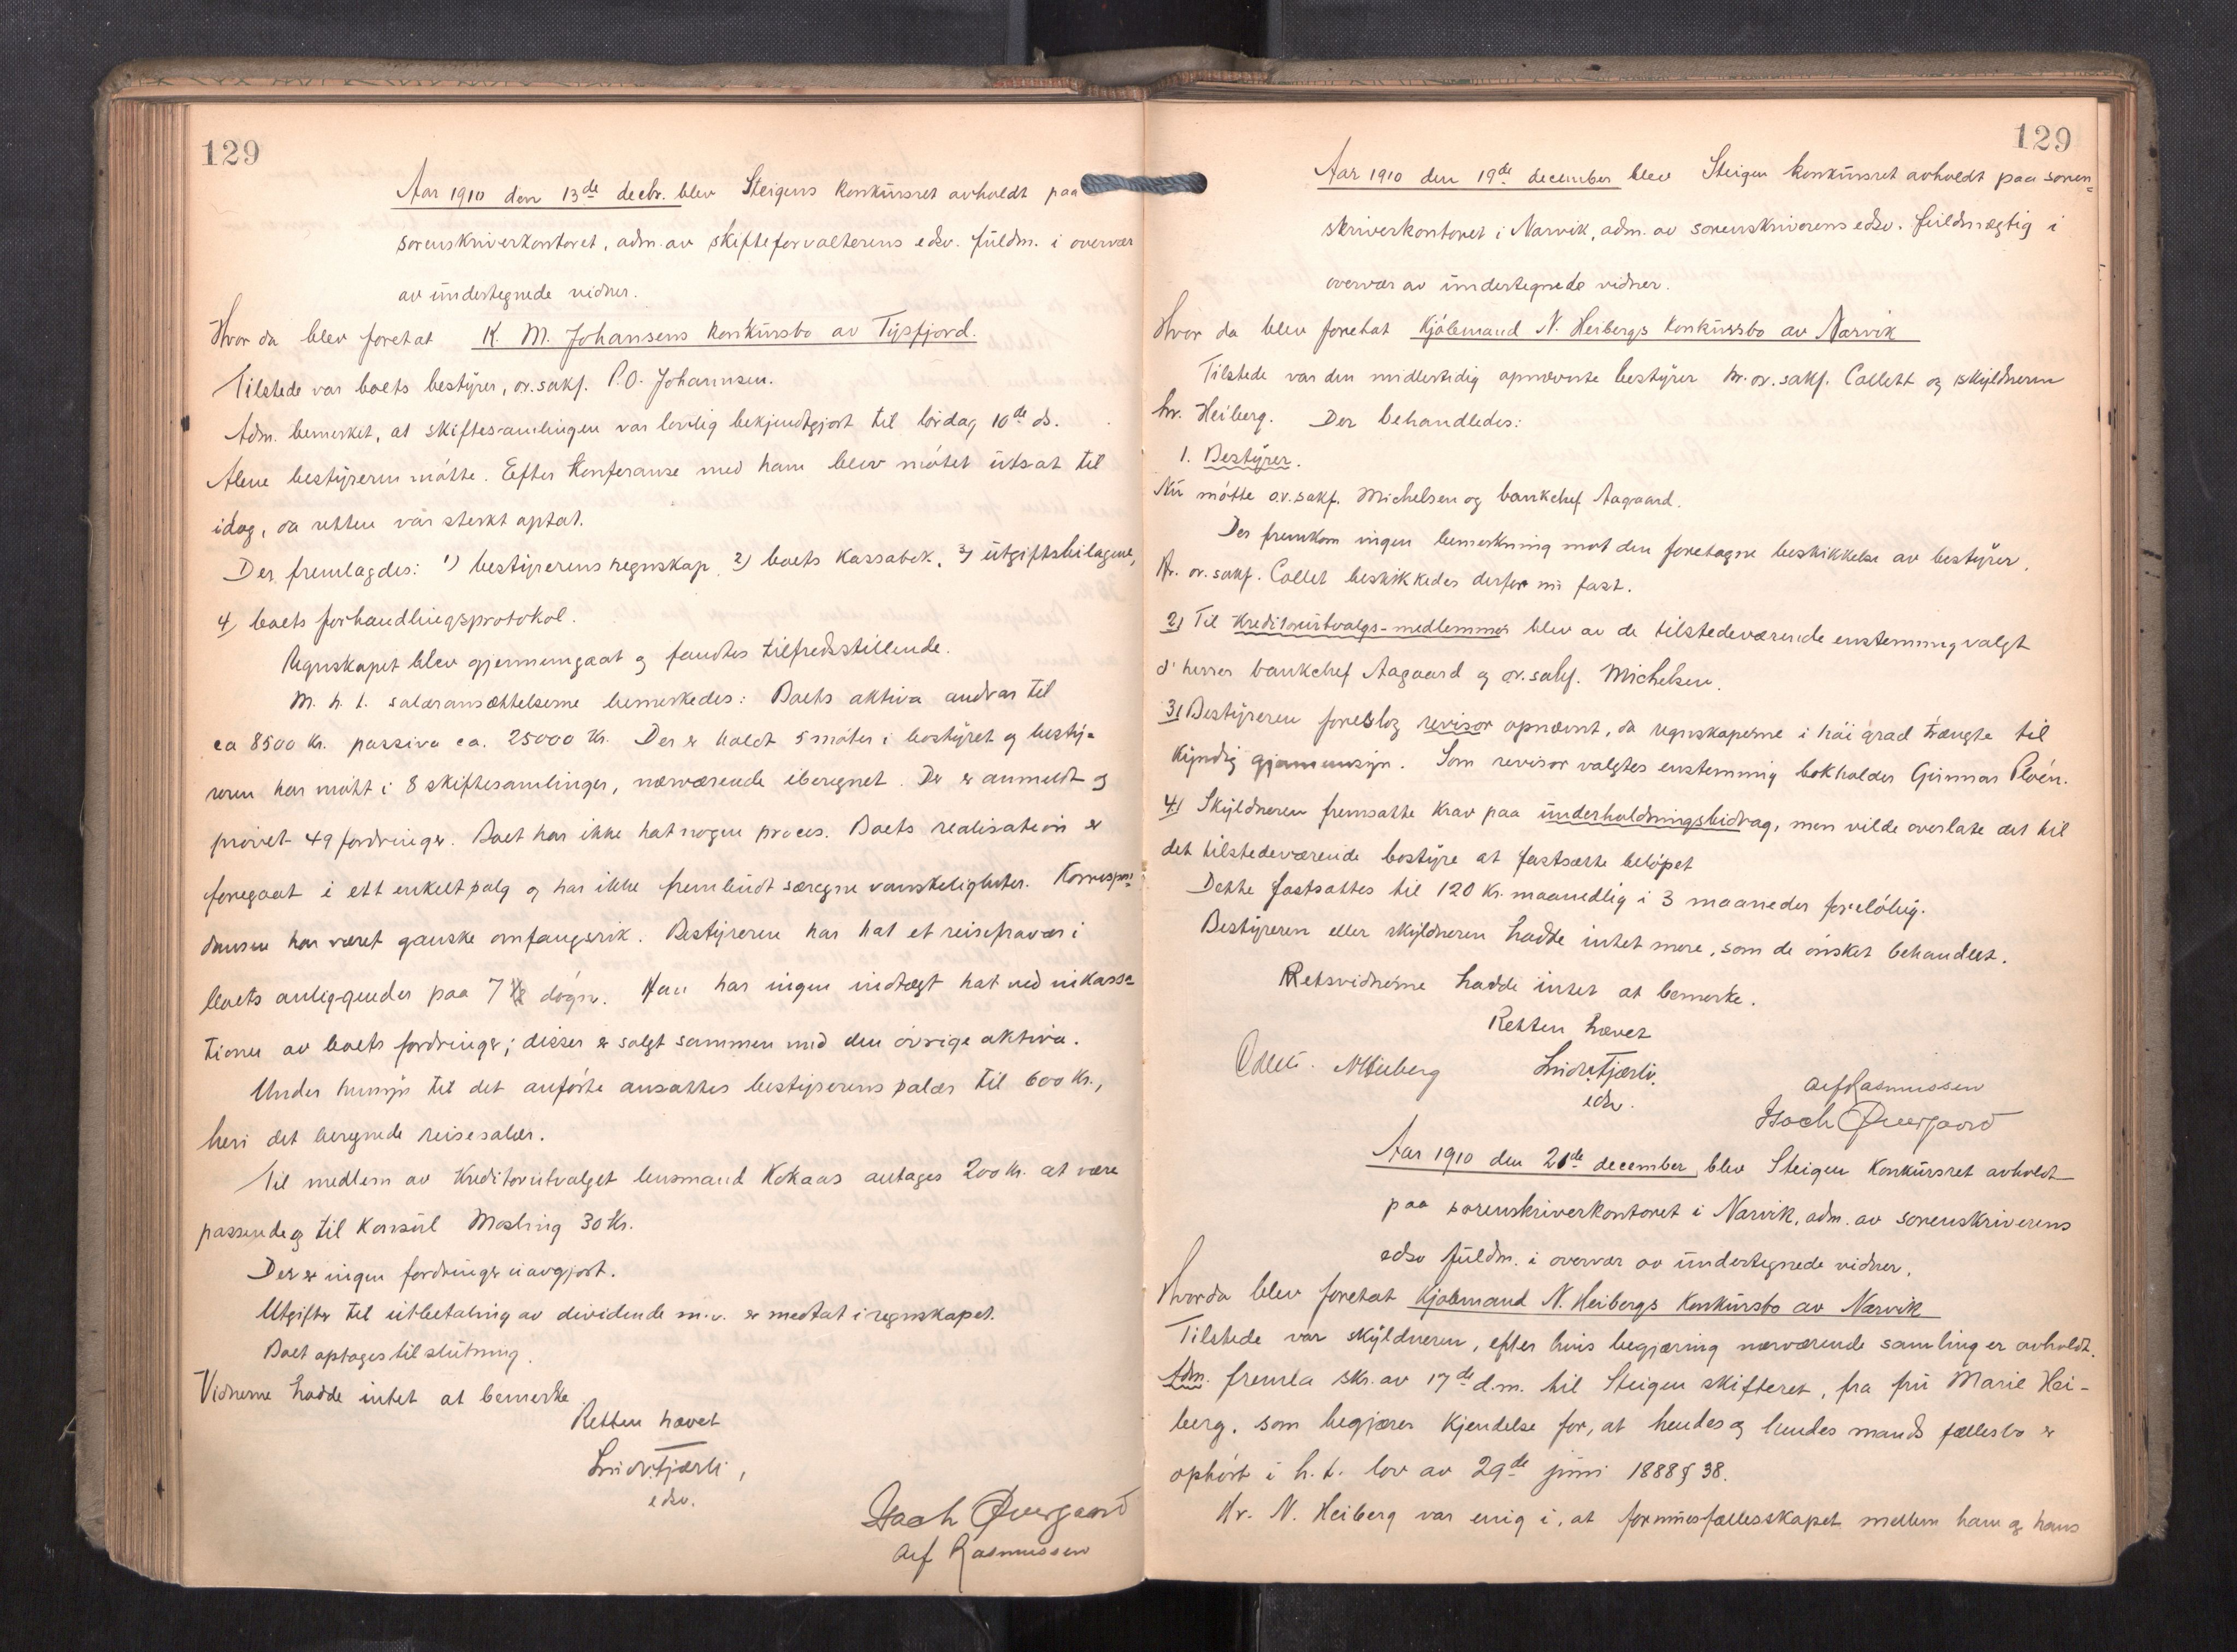 129
Aar 1910 den 13de decbr. blev Steigens konkursret avholdt paa
sorenskriverkontoret, adm. av skifteforvalterens edsv. fuldm. i overvær
av undertegnede vidner.
Hvor da blev foretat K. M. Johansens konkursbo av Tysfjord.
Tilstede var boets bestyrer, ov.sakf. P.O. Johannsen.
Adm. bemerket, at skiftesamlingen var lovlig bekjendtgjort til lørdag 10de ds.
Alene bestyreren møtte. Efter konferanse med ham blev møtet utsat til
idag, da retten var sterkt optat.
Der fremlagdes: 1) bestyrerens regnskap, 2) boets kassabok, 3) utgiftsbilagene,
4) boets forhandlingsprotokol.
Regnskapet blev gjennemgaat og fandtes tilfredsstillende.
M. h. t. salæransættelserne bemerkedes: Boets aktiva androg til
ca 8500 kr. passiva ca. 25000 kr. Der er holdt 5 møter i bostyret og besty-
reren har møtt i 8 skiftesamlinger, nærværende iberegnet. Der er anmeldt og
prøvet 49 fordringer. Boet har ikke hat nogen proces. Boets realisation er
foregaat i ett enkelt salg og har ikke frembudt særegne vanskeligheter. Korrespon-
dansen har været ganske omfangsrik. Bestyreren har hat et reisefravær i
boets anliggender paa 7 døgn. Han har ingen indtægt hat ved inkassa-
tionen av boets fordringer; disse er solgt sammen med den øvrige aktiva.
Under hensyn til det anførte ansattes bestyrerens salær til 600 kr.,
heri det beregnede reisesalær.
Til medlem av kreditorutvalget lensmand Kokaas antages 200 kr. at være
passende og til konsul Mosling 30 kr.
Der er ingen fordringer uavgjort.
Utgifter til utbetaling av dividende m.v. er medtat i regnskapet.
Boet optages til slutning.
Vidnerne hadde intet at bemerke.
Retten hævet
edsv.
Isach Overgaard
Alf Rasmussen
129
Aar 1910 den 19de december blev Steigen konkursret avholdt paa soren-
skriverkontoret i Narvik, adm. av sorenskriverens edsv. fuldmægtig i
overvær av undertegnede vidner.
Hvor da blev foretat Kjøbmand N. Heibergs konkursbo av Narvik
Tilstede var den midlertidig opnævnte bestyrer hr. ov. sakf. Collett og skyldneren
hr. Heiberg. Der behandledes:
1. Bestyrer.
Nu møtte o.v. sakf. Michelsen og bankchef Aagaard.
Der fremkom ingen bemerkning mot den foretagne beskikkelse av bestyrer.
Hr. ov. sakf. Collet beskikkedes derfor nu fast.
2) Til kreditorutvalgs-medlemmer blev av de tilstedeværende enstemmig valgt
d'herrer bankchef Aagaard og ov.sakf. Michelsen.
3) Bestyreren foreslog revisor opnævnt, da regnskaperne i høi grad trængte til
kyndig gjennemsyn. Som revisor valgtes enstemmig bokholder Gunnar Ploén.
4) Skyldneren fremsatte krav paa underholdningsbidrag, men vilde overlate det til
det tilstedeværende bostyre at fastsætte beløpet
Dette fastsattes til 120 kr. maanedlig i 3 maaneder foreløbig.
Bestyreren eller skyldneren hadde intet mere, som de ønsket behandlet.
Retsvidnerne hadde intet at bemerke.
Retten hævet
Collett. NHeiberg
edsv.
Alf Rasmussen
Isach Overgaard
Aar 1910 den 21de december blev Steigen konkursret avholdt
paa sorenskriverkontoret i Narvik, adm. av sorenskriverens
edsv fuldm. i overvær av undertegnede vidner.
Hvor da blev foretat Kjøbmand N. Heibergs konkursbo av Narvik
Tilstede var skyldneren, efter hvis begjæring nærværende samling er avholdt.
Adm. fremla skr. av 17de d.m. til Steigen skifteret, fra fru Marie Hei-
berg, som begjærer kjendelse for, at hendes og hendes mands fællesbo er
ophørt i h.t. lov av 29de juni 1888 § 38.
Hr. N. Heiberg var enig i, at formuesfællesskapet mellem ham og hans